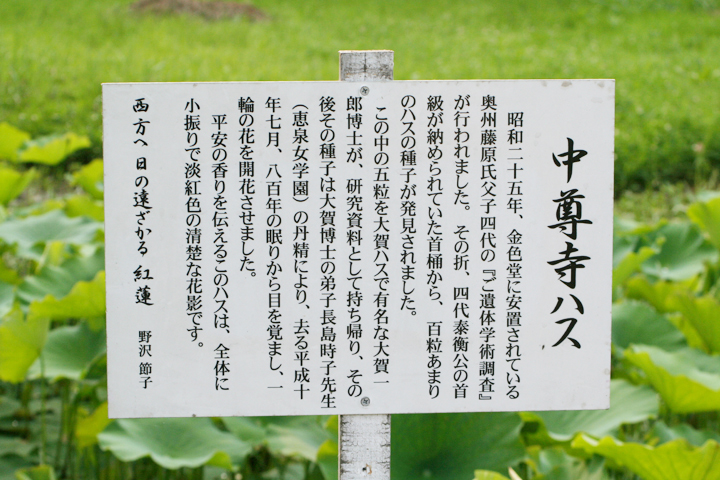 中尊寺ハス
昭和二十五年、金色堂に安置されている
奥州藤原氏父子四代の『ご遺体学術調査』
が行われました。その折、四代泰衡公の首
級が納められていた首桶から、百粒あまり
のハスの種子が発見されました。
この中の五粒を大賀ハスで有名な大賀一
郎博士が、研究資料として持ち帰り、その
後その種子は大賀博士の弟子長島時子先生
（恵泉女学園）の丹精により、去る平成十
年七月、八百年の眠りから目を覚まし、一
輪の花を開花させました。
平安の香りを伝えるこのハスは、全体に
小振りで淡紅色の清楚な花影です。
西方へ日の遠ざかる紅蓮
野沢 節子